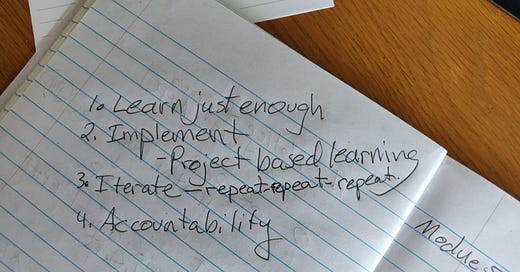 1. Learn just enough
2. Implement
-Project based learning
3. Iterate -repeat-repeat-repeat.
4. Accountability
Module